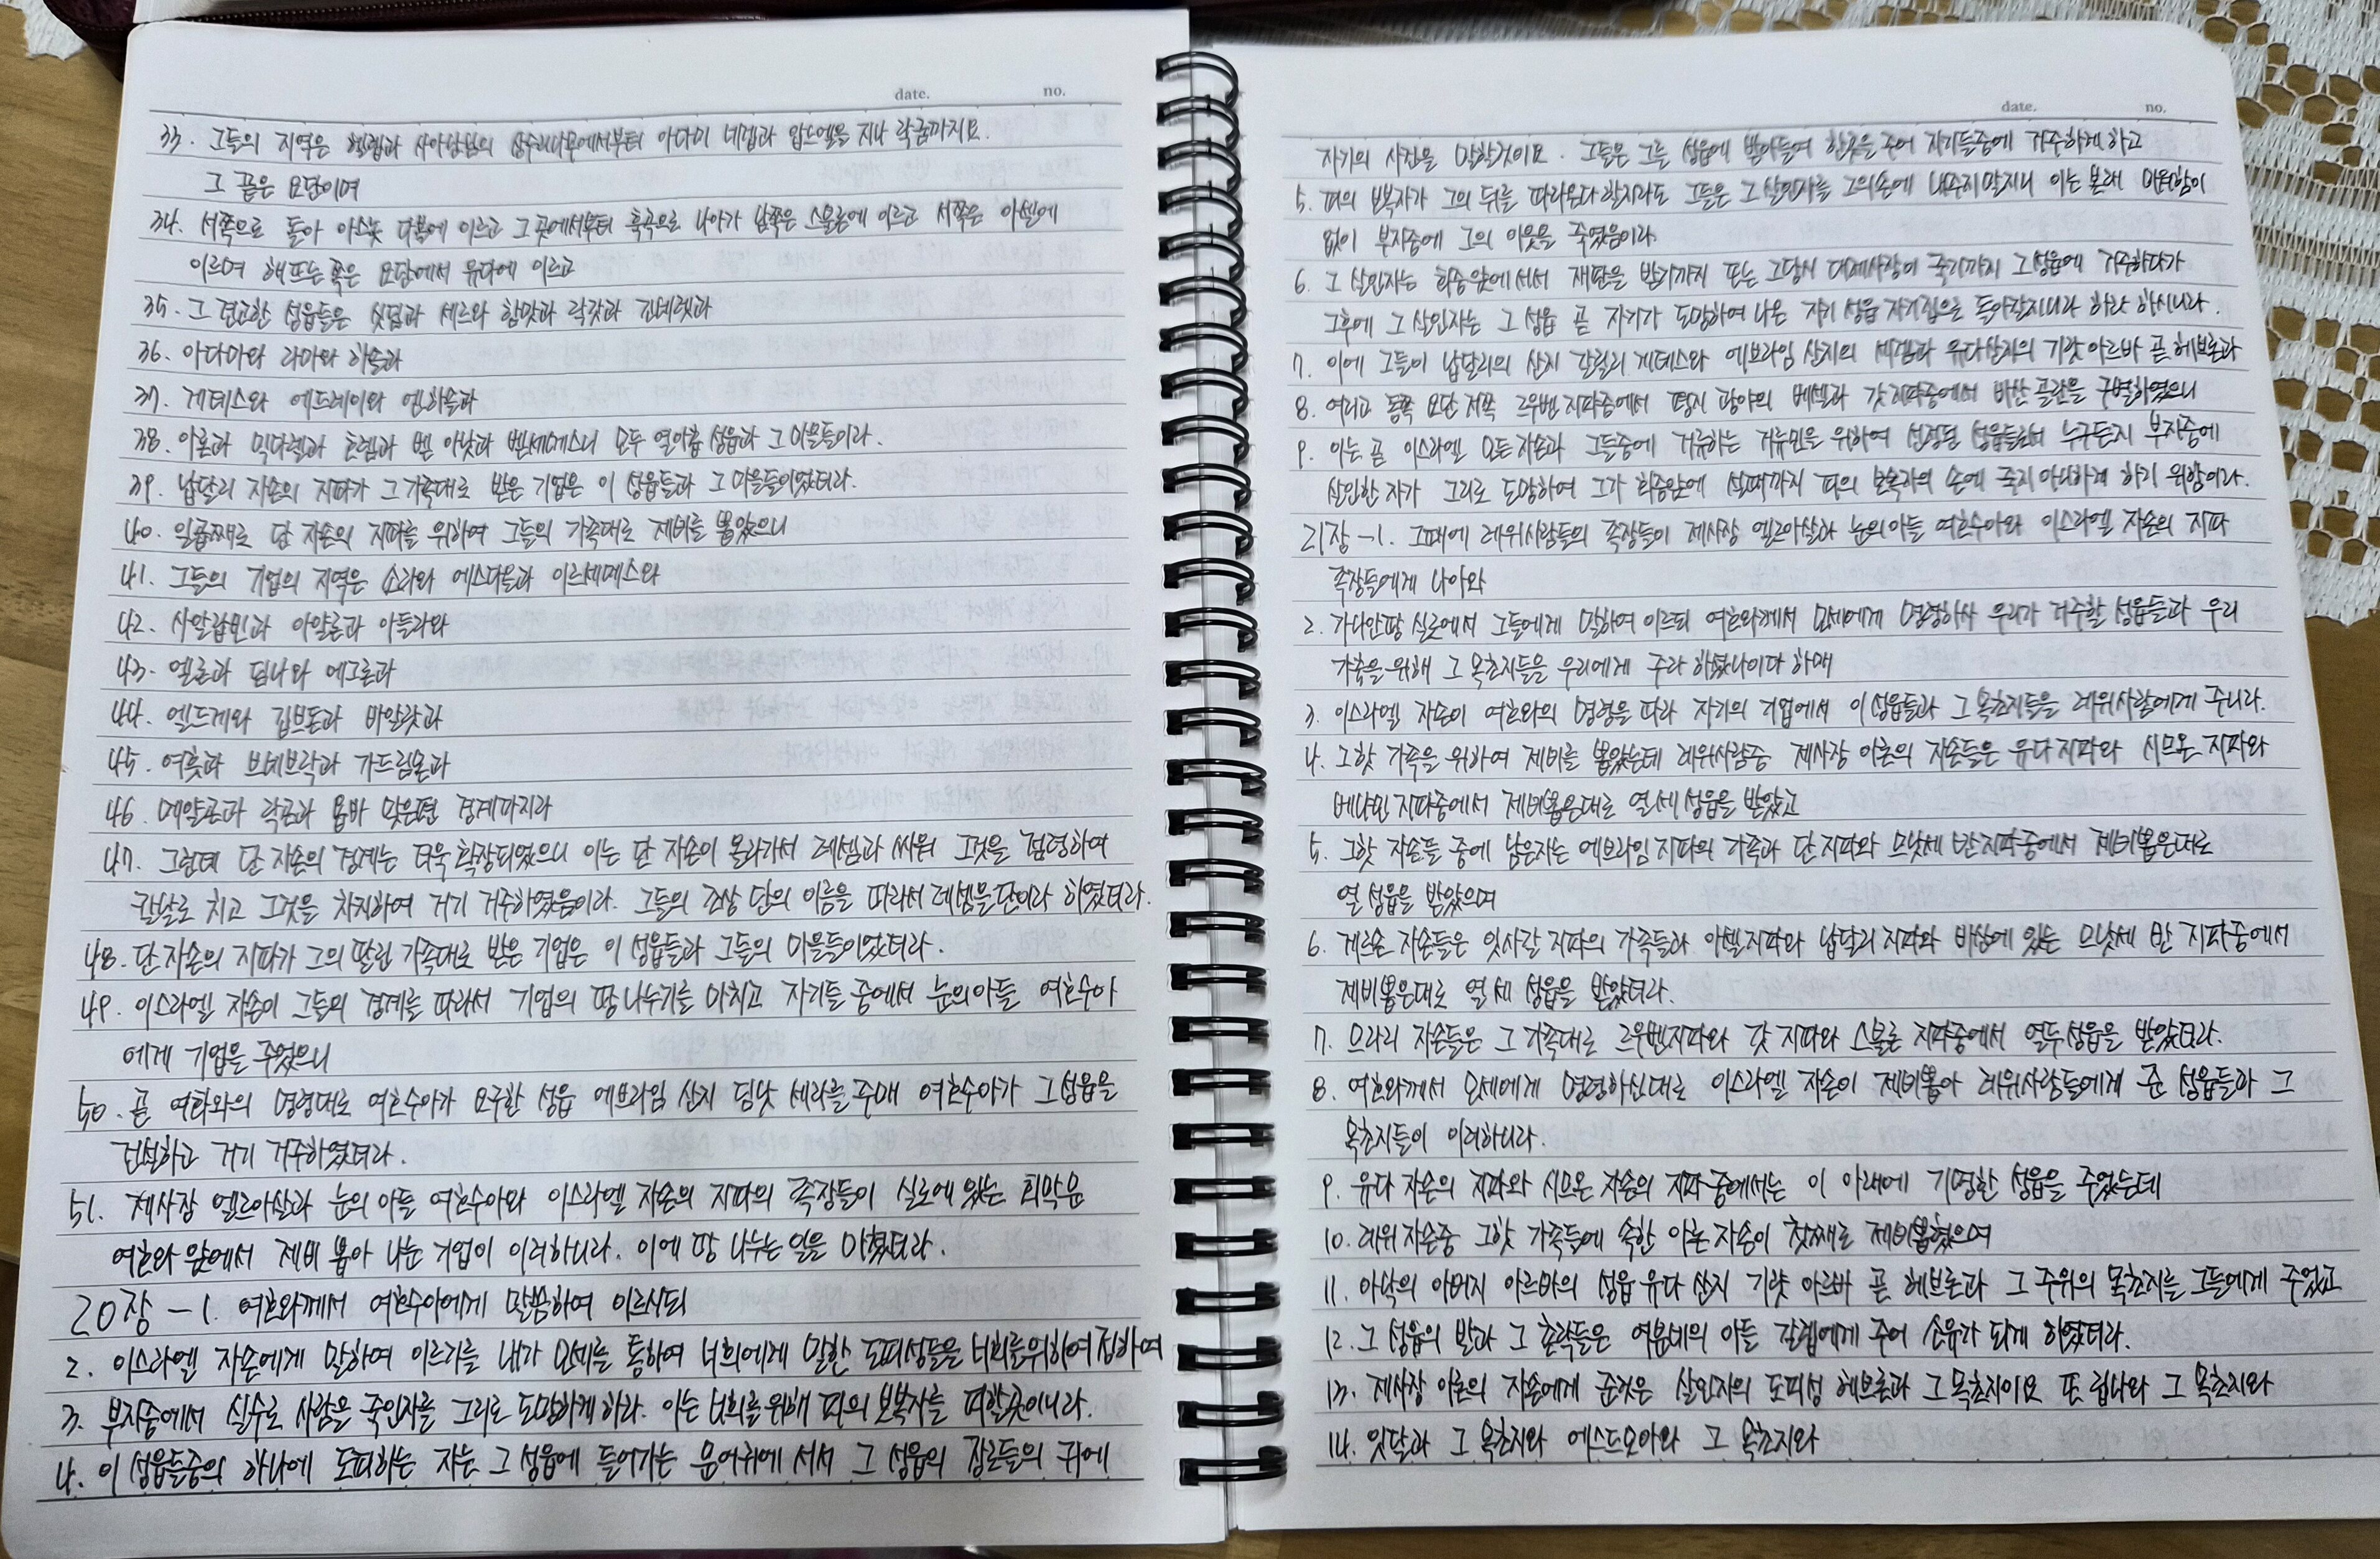 date. no.
33. 그들의 지역은 헬렙과 사아난님의 상수리나무에서부터 아다미 네겝과 얍느엘을 지나 락굼까지요.
그 끝은 요단이며
34. 서쪽으로 돌아 아스놋 다볼에 이르고 그 곳에서부터 훅곡으로 나아가 남쪽은 스불론에 이르고 서쪽은 아셀에
이르며 해뜨는 쪽은 요단에서 유다에 이르고
35. 그 견고한 성읍들은 싯딤과 세르와 함맛과 락갓과 긴네렛과
36. 아다마와 라마와 하솔과
37. 게데스와 에드레이와 엔하솔과
38. 이론과 믹다렐과 호렘과 벧 아낫과 벧세메스니 모두 열아홉 성읍과 그 마을들이라.
39. 납달리 자손의 지파가 그 가족대로 받은 기업은 이 성읍들과 그 마을들이었더라.
40. 일곱째로 단 자손의 지파를 위하여 그들의 가족대로 제비를 뽑았으니
41. 그들의 기업의 지역은 소라와 에스다올과 이르세메스와
42. 사알랍빈과 아얄론과 이들라와
43. 엘론과 딤나와 에그론과
44. 엘드게와 깁브돈과 바알랏과
45. 여훗과 브네브락과 가드림몬과
46. 메얄곤과 락곤과 욥바 맞은편 경계까지라
47. 그런데 단 자손의 경계는 더욱 확장되었으니 이는 단 자손이 올라가서 레셈과 싸워 그것을 점령하여
칼날로 치고 그것을 차지하여 거기 거주하였음이라. 그들의 조상 단의 이름을 따라서 레셈을 단이라 하였더라.
48. 단 자손의 지파가 그의 딸린 가족대로 받은 기업은 이 성읍들과 그들의 마을들이었더라.
49. 이스라엘 자손이 그들의 경계를 따라서 기업의 땅 나누기를 마치고 자기들 중에서 눈의 아들 여호수아
에게 기업을 주었으니
50. 곧 여호와의 명령대로 여호수아가 요구한 성읍 에브라임 산지 딤낫 세라를 주매 여호수아가 그 성읍을
건설하고 거기 거주하였더라.
51. 제사장 엘르아살과 눈의 아들 여호수아와 이스라엘 자손의 지파의 족장들이 실로에 있는 회막문
여호와 앞에서 제비 뽑아 나눈 기업이 이러하니라. 이에 땅 나누는 일을 마쳤더라.
20장 - 1. 여호와께서 여호수아에게 말씀하여 이르시되
2. 이스라엘 자손에게 말하여 이르기를 내가 모세를 통하여 너희에게 말한 도피성들을 너희를위하여 정하여
3. 부지중에서 실수로 사람을 죽인자를 그리로 도망하게 하라. 이는 너희를 위해 피의 보복자를 피할곳이니라.
4. 이 성읍들중의 하나에 도피하는 자는 그 성읍에 들어가는 문어귀에 서서 그 성읍의 장로들의 귀에
date. no.
자기의 사건을 말할것이요. 그들은 그를 성읍에 받아들여 한곳을 주어 자기들중에 거주하게 하고
5. 피의 보복자가 그의 뒤를 따라온다 할지라도 그들은 그 살인자를 그의손에 내주지말지니 이는 본래 미워함이
없이 부지중에 그의 이웃을 죽였음이라.
6. 그 살인자는 회중앞에 서서 재판을 받기까지 또는 그당시 대제사장이 죽기까지 그성읍에 거주하다가
그후에 그 살인자는 그 성읍 곧 자기가 도망하여 나온 자기 성읍 자기집으로 돌아갈지니라 하라 하시니라.
7. 이에 그들이 납달리의 산지 갈릴리 게데스와 에브라임 산지의 세겜과 유다산지의 기럇 아르바 곧 헤브론과
8. 여리고 동쪽 요단 저쪽 르우벤 지파중에서 평지 광야의 베셀과 갓 지파중에서 바산 골란을 구별하였으니
9. 이는 곧 이스라엘 모든 자손과 그들중에 거류하는 거류민을 위하여 선정된 성읍들로서 누구든지 부지중에
살인한 자가 그리로 도망하여 그가 회중앞에 설때까지 피의 보복자의 손에 죽지 아니하게 하기 위함이라.
21장 -1. 그때에 레위사람들의 족장들이 제사장 엘르아살과 눈의 아들 여호수아와 이스라엘 자손의 지파
족장들에게 나아와
2. 가나안땅 실로에서 그들에게 말하여 이르되 여호와께서 모세에게 명령하사 우리가 거주할 성읍들과 우리
가축을 위해 그 목초지들을 우리에게 주라 하셨나이다 하매
3. 이스라엘 자손이 여호와의 명령을 따라 자기의 기업에서 이 성읍들과 그 목초지들을 레위사람에게 주니라.
4. 그핫 가족을 위하여 제비를 뽑았는데 레위사람중 제사장 아론의 자손들은 유다지파와 시므온 지파와
베냐민 지파중에서 제비뽑은대로 열세성읍을 받았고
5. 그핫 자손들 중에 남은자는 에브라임 지파의 가족과 단 지파와 므낫세 반 지파중에서 제비뽑은대로
열 성읍을 받았으며
6. 게르손 자손들은 잇사갈 지파의 가족들과 아셀지파와 납달리 지파와 바산에 있는 므낫세 반 지파중에서
제비뽑은대로 열 세 성읍을 받았더라.
7. 므라리 자손들은 그 가족대로 르우벤지파와 갓 지파와 스불론 지파중에서 열두성읍을 받았더라.
8. 여호와께서 모세에게 명령하신대로 이스라엘 자손이 제비뽑아 레위사람들에게 준 성읍들과 그
목초지들이 이러하니라.
9. 유다 자손의 지파와 시므온 자손의 지파 중에서는 이 아래에 기명한 성읍을 주었는데
10. 레위 자손중 그핫 가족들에 속한 아론 자손이 첫째로 제비뽑혔으며
11. 아낙의 아버지 아르바의 성읍 유다 산지 기럇 아르바 곧 헤브론과 그 주위의 목초지를 그들에게 주었고
12. 그 성읍의 밭과 그 촌락들은 여분네의 아들 갈렙에게 주어 소유가 되게 하였더라.
13. 제사장 아론의 자손에게 준것은 살인자의 도피성 헤브론과 그 목초지이요 또 립나와 그 목초지와
14. 얏딜과 그 목초지와 에스드모아와 그 목초지와